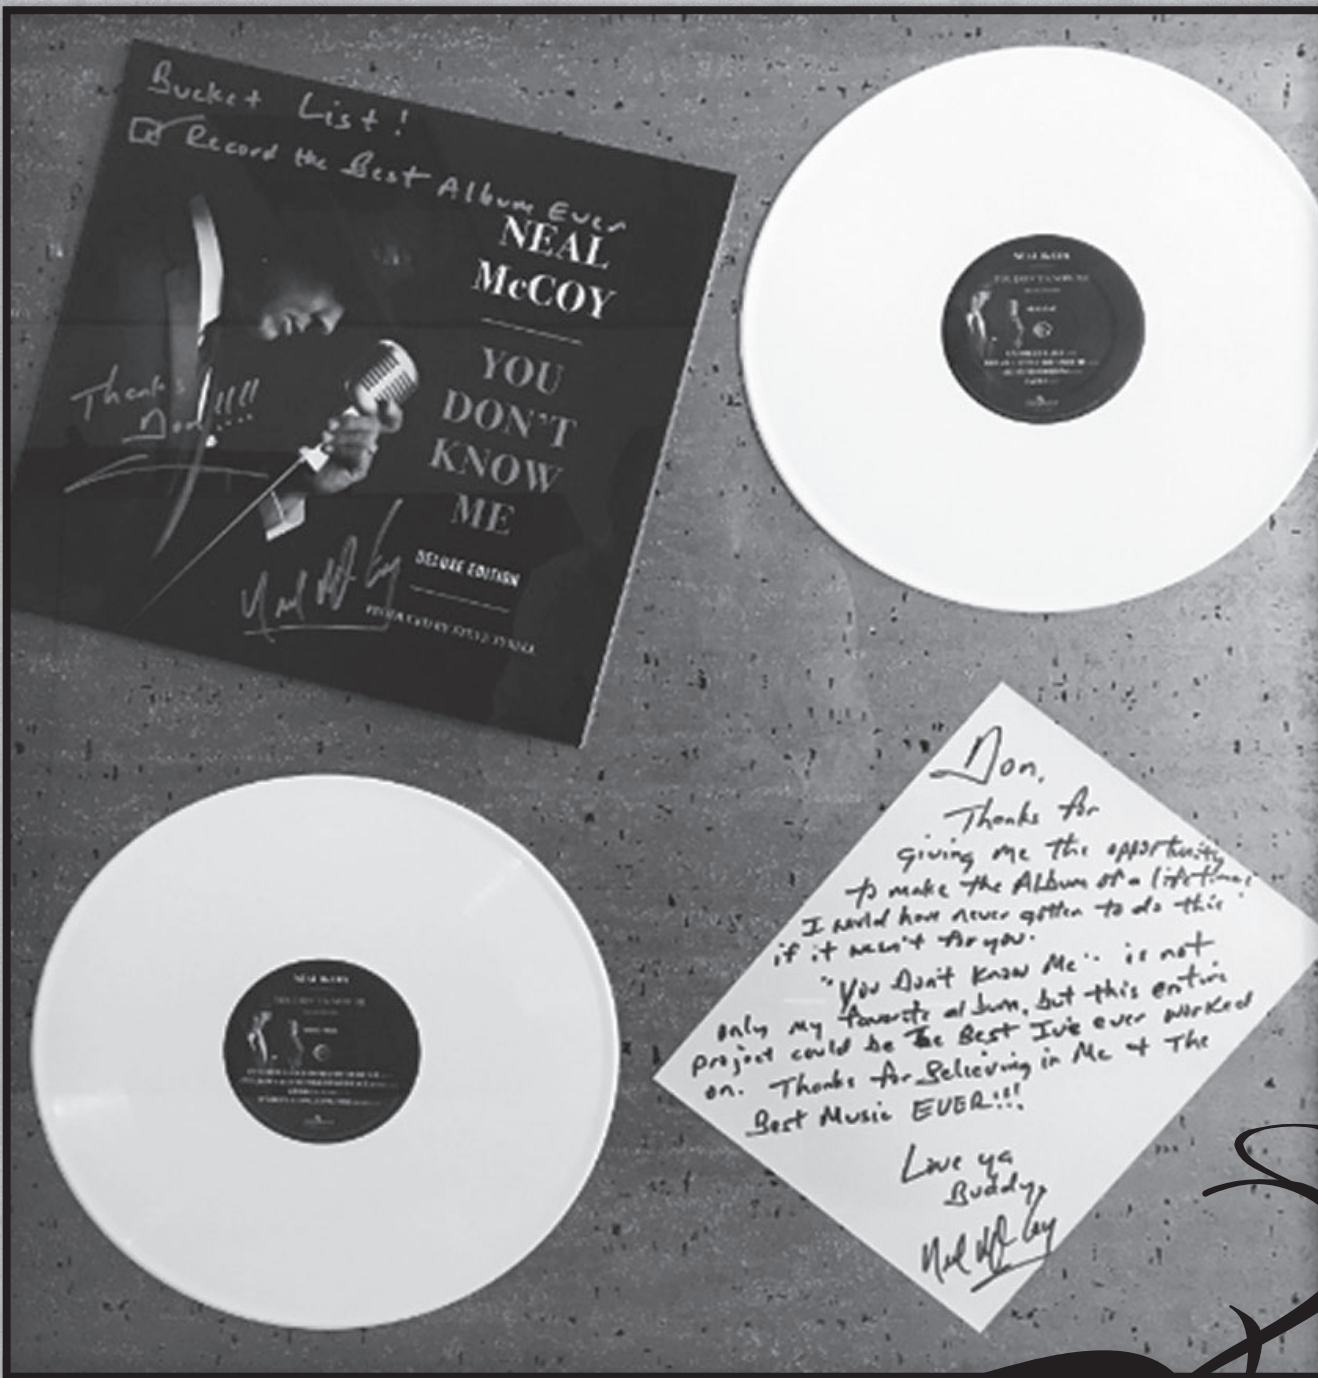 Bucket List!
Record the Best Album Ever
NEAL
McCOY
YOU
DON'T
KNOW
ME
DELUXE EDITION
Thanks
Don!!!!
Neal McCoy
NEAL McCOY
NEAL McCOY
Don,
Thanks for
giving me the opportunity
to make the Album of a lifetime
I would have never gotten to do this
if it wasn't for you.
"You Don't Know Me" is not
only my favorite album, but this entire
project could be the Best I've ever worked
on. Thanks for Believing in Me + The
Best Music EVER!!!
Love ya
Buddy,
Neal McCoy